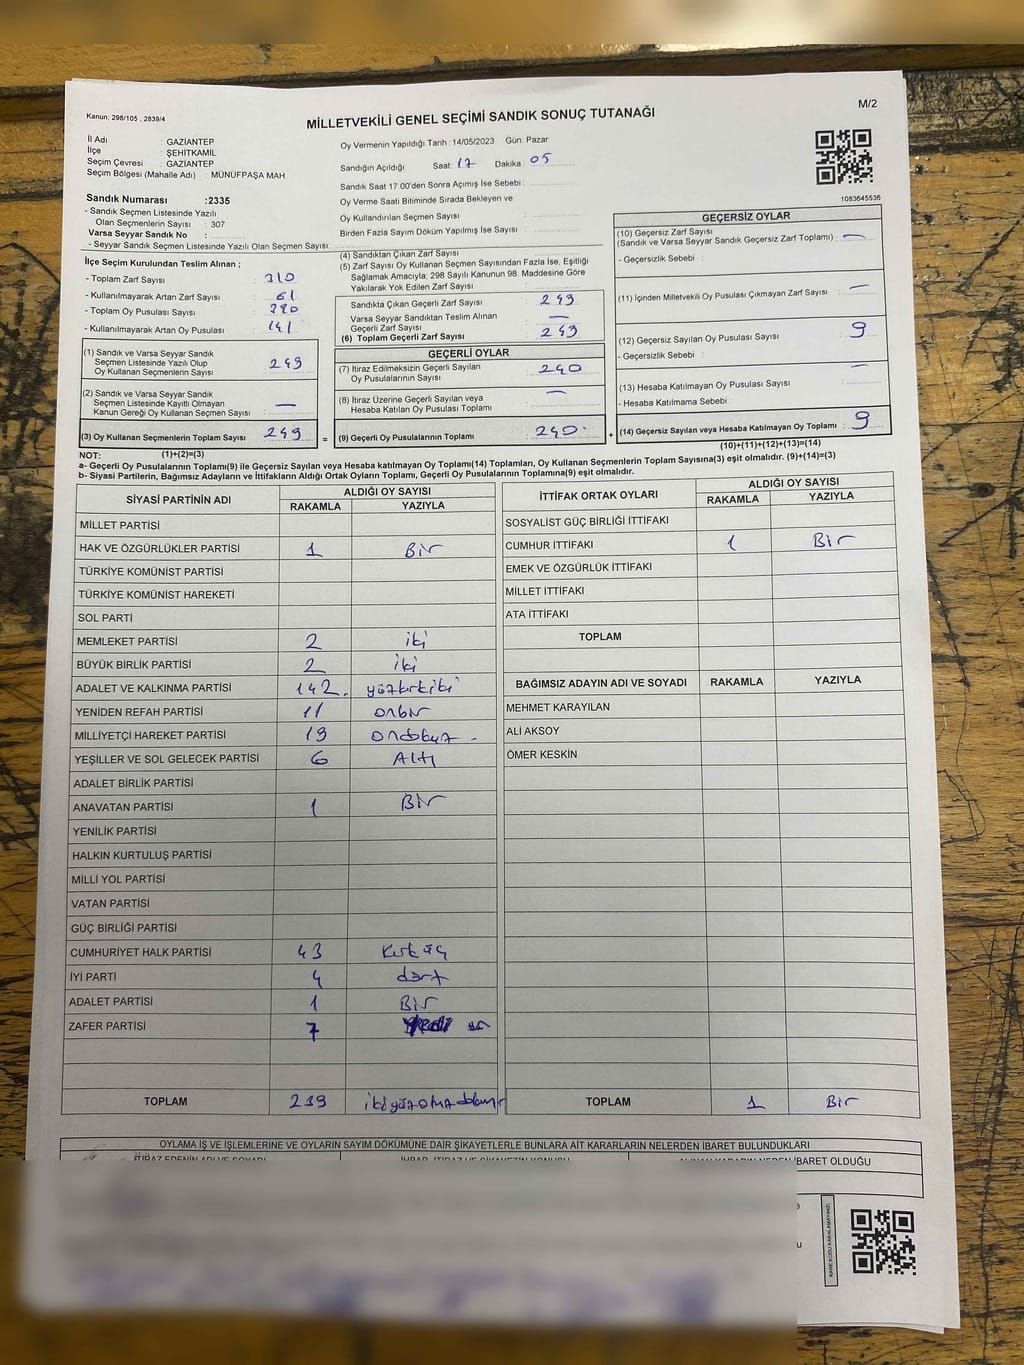 M/2
Kanun: 298/105 , 2839/4
MİLLETVEKİLİ GENEL SEÇİMİ SANDIK SONUÇ TUTANAĞI
İl Adı : GAZİANTEP
İlçe : ŞEHİTKAMİL
Seçim Çevresi : GAZİANTEP
Seçim Bölgesi (Mahalle Adı) : MÜNÜFPAŞA MAH.
Oy Vermenin Yapıldığı Tarih :14/05/2023 Gün: Pazar
Sandığın Açıldığı Saat: 17 Dakika : 05
Sandık Saat 17.00'den Sonra Açımış İse Sebebi :
Oy Verme Saati Bitiminde Sırada Bekleyen ve
Oy Kullandırılan Seçmen Sayısı :
Birden Fazla Sayım Döküm Yapılmış İse Sayısı :
1083645536
Sandık Numarası :2335
- Sandık Seçmen Listesinde Yazılı
Olan Seçmenlerin Sayısı : 307
Varsa Seyyar Sandık No :
- Seyyar Sandık Seçmen Listesinde Yazılı Olan Seçmen Sayısı:
İlçe Seçim Kurulundan Teslim Alınan ;
- Toplam Zarf Sayısı : 310
- Kullanılmayarak Artan Zarf Sayısı : 61
- Toplam Oy Pusulası Sayısı :
- Kullanılmayarak Artan Oy Pusulası : 141
(1) Sandık ve Varsa Seyyar Sandık
Seçmen Listesinde Yazılı Olup
Oy Kullanan Seçmenlerin Sayısı : 249
(2) Sandık ve Varsa Seyyar Sandık
Seçmen Listesinde Kayıtlı Olmayan
Kanun Gereği Oy Kullanan Seçmen Sayısı : —
(3) Oy Kullanan Seçmenlerin Toplam Sayısı : 249
(1)+(2)=(3)
(4) Sandıktan Çıkan Zarf Sayısı :
(5) Zarf Sayısı Oy Kullanan Seçmen Sayısından Fazla İse, Eşitliği
Sağlamak Amacıyla; 298 Sayılı Kanunun 98. Maddesine Göre
Yakılarak Yok Edilen Zarf Sayısı :
Sandıkta Çıkan Geçerli Zarf Sayısı : 249
Varsa Seyyar Sandıktan Teslim Alınan
Geçerli Zarf Sayısı : —
(6) Toplam Geçerli Zarf Sayısı : 249
=
GEÇERLİ OYLAR
(7) İtiraz Edilmeksizin Geçerli Sayılan
Oy Pusulalarının Sayısı : 240
(8) İtiraz Üzerine Geçerli Sayılan veya
Hesaba Katılan Oy Pusulası Toplamı : —
(9) Geçerli Oy Pusulalarının Toplamı : 240
+
GEÇERSİZ OYLAR
(10) Geçersiz Zarf Sayısı
(Sandık ve Varsa Seyyar Sandık Geçersiz Zarf Toplamı) : —
- Geçersizlik Sebebi :
(11) İçinden Milletvekili Oy Pusulası Çıkmayan Zarf Sayısı : —
(12) Geçersiz Sayılan Oy Pusulası Sayısı : 9
- Geçersizlik Sebebi :
(13) Hesaba Katılmayan Oy Pusulası Sayısı : —
- Hesaba Katılmama Sebebi :
(14) Geçersiz Sayılan veya Hesaba Katılmayan Oy Toplamı : 9
(10)+(11)+(12)+(13)=(14)
NOT:
a- Geçerli Oy Pusulalarının Toplamı(9) ile Geçersiz Sayılan veya Hesaba katılmayan Oy Toplamı(14) Toplamları, Oy Kullanan Seçmenlerin Toplam Sayısına(3) eşit olmalıdır. (9)+(14)=(3)
b- Siyasi Partilerin, Bağımsız Adayların ve İttifakların Aldığı Ortak Oyların Toplamı, Geçerli Oy Pusulalarının Toplamına(9) eşit olmalıdır.
SİYASİ PARTİNİN ADI ALDIĞI OY SAYISI
RAKAMLA YAZIYLA
MİLLET PARTİSİ
HAK VE ÖZGÜRLÜKLER PARTİSİ 1 Bir
TÜRKİYE KOMÜNİST PARTİSİ
TÜRKİYE KOMÜNİST HAREKETİ
SOL PARTİ
MEMLEKET PARTİSİ 2 iki
BÜYÜK BİRLİK PARTİSİ 2 iki
ADALET VE KALKINMA PARTİSİ 142. yüzkırkiki
YENİDEN REFAH PARTİSİ 11 onbir
MİLLİYETÇİ HAREKET PARTİSİ 19 ondokuz -
YEŞİLLER VE SOL GELECEK PARTİSİ 6 Altı
ADALET BİRLİK PARTİSİ
ANAVATAN PARTİSİ 1 Bir
YENİLİK PARTİSİ
HALKIN KURTULUŞ PARTİSİ
MİLLİ YOL PARTİSİ
VATAN PARTİSİ
GÜÇ BİRLİĞİ PARTİSİ
CUMHURİYET HALK PARTİSİ 43 kırk üç
İYİ PARTİ 4 dört
ADALET PARTİSİ 1 Bir
ZAFER PARTİSİ 7
TOPLAM 239 ikiyüzotuzdokuz
İTTİFAK ORTAK OYLARI ALDIĞI OY SAYISI
RAKAMLA YAZIYLA
SOSYALİST GÜÇ BİRLİĞİ İTTİFAKI
CUMHUR İTTİFAKI 1 Bir
EMEK VE ÖZGÜRLÜK İTTİFAKI
MİLLET İTTİFAKI
ATA İTTİFAKI
TOPLAM
BAĞIMSIZ ADAYIN ADI VE SOYADI RAKAMLA YAZIYLA
MEHMET KARAYILAN
ALİ AKSOY
ÖMER KESKİN
TOPLAM 1 Bir
OYLAMA İŞ VE İŞLEMLERİNE VE OYLARIN SAYIM DÖKÜMÜNE DAİR ŞİKAYETLERLE BUNLARA AİT KARARLARIN NELERDEN İBARET BULUNDUKLARI
İTİRAZ EDENİN ADI VE SOYADI İHBAR, İTİRAZ VE ŞİKAYETİN KONUSU ALINAN KARARIN NEDEN İBARET OLDUĞU
KARE KODU KARALAMAYINIZ!